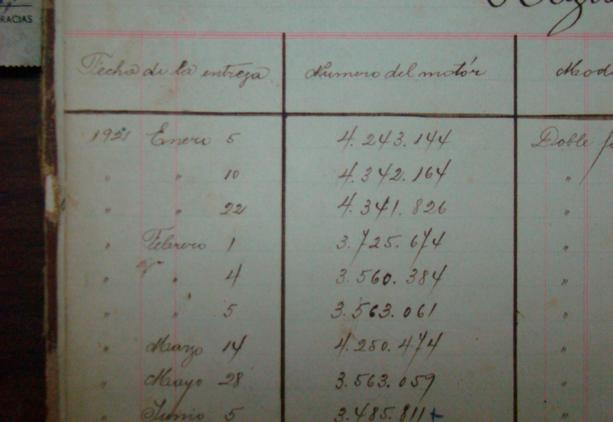 RACIAS
Fecha de la entrega Numero del motór
1921 Enero 5 4.243.144 Doble
" " 10 4.342.164 "
" " 22 4.341.826 "
" Febrero 1 3.725.674 "
" " 4 3.560.384 "
" " 5 3.563.061 "
" Marzo 14 4.250.474 "
" Mayo 28 3.563.059 "
" Junio 5 3.485.811 "